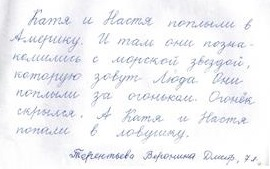 Катя и Настя поплыли в
Америку. И там они позна-
комились с морской звездой,
которую зовут Люда. Они
поплыли за огоньком. Огонёк
скрылся. А Катя и Настя
попали в ловушку.
Терентьева Вероника 7 л.